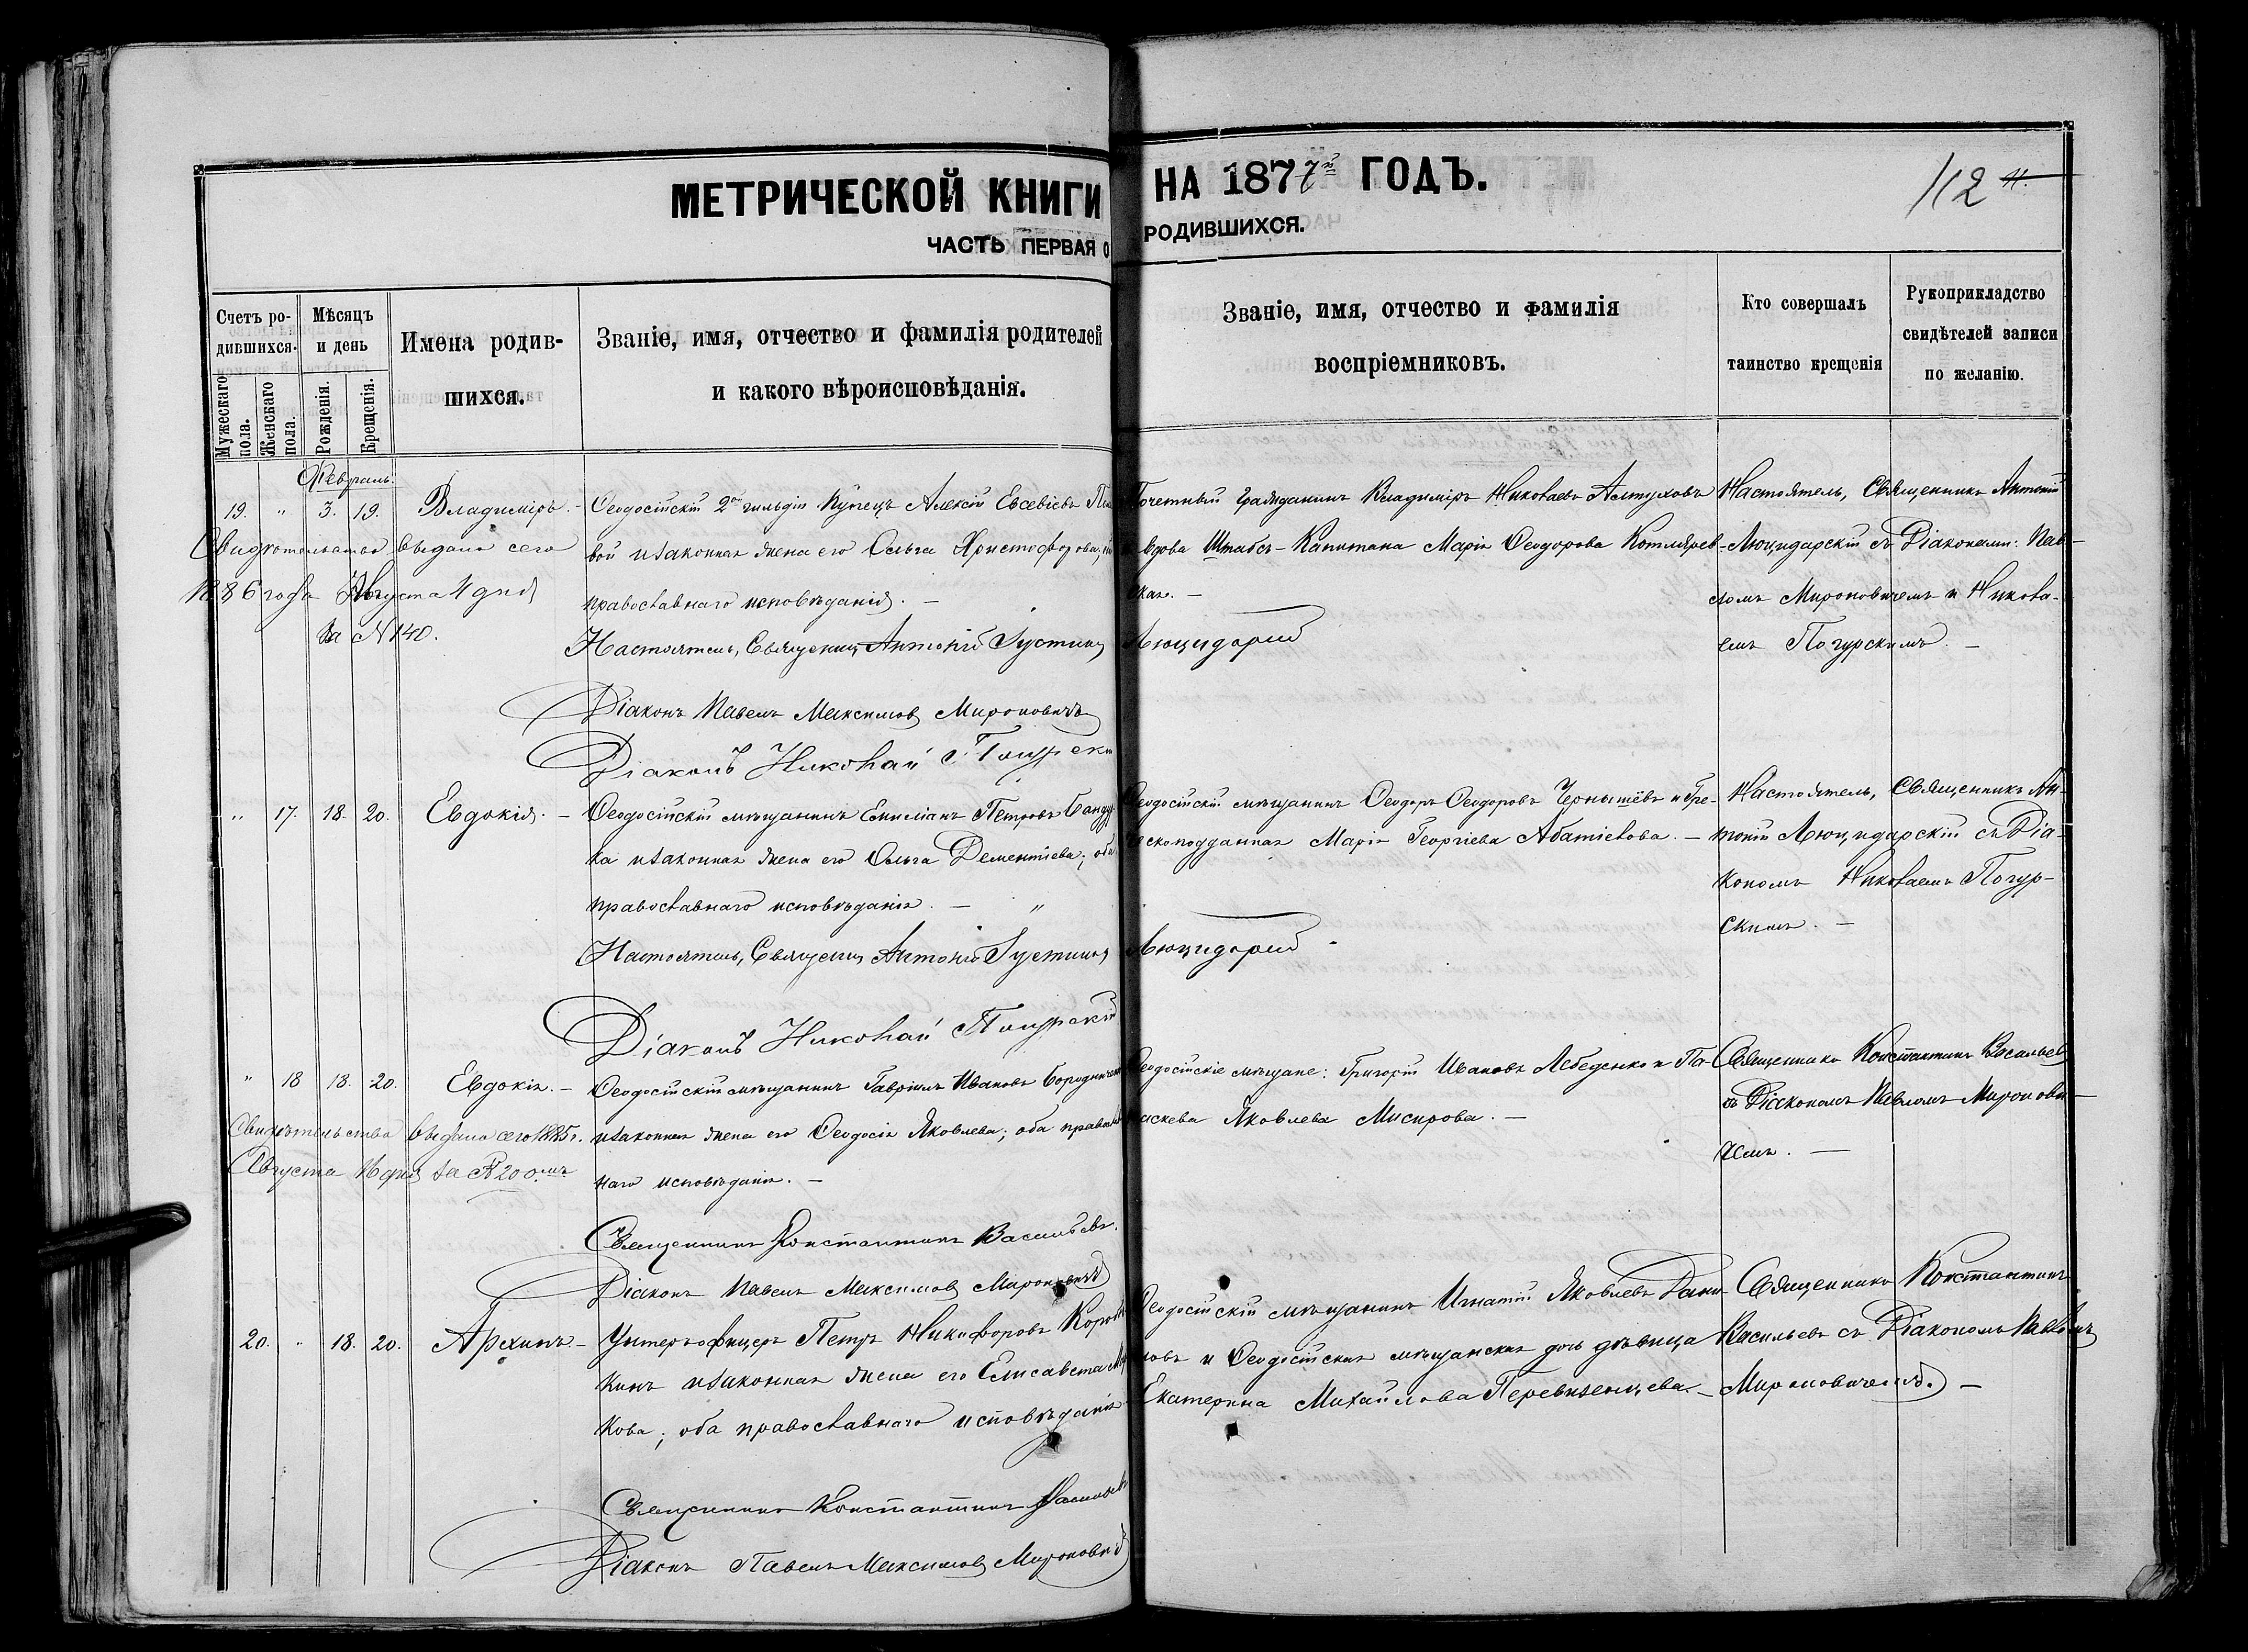 МЕТРИЧЕСКОЙ КНИГИ НА 1877й ГОДЪ.
112
ЧАСТЬ ПЕРВАЯ О РОДИВШИХСЯ.
Счетъ родившихся.
Мужескаго пола.
Женскаго пола.
Мѣсяцъ и день
Рожденія.
Крещенія.
Имена родив-
шихся.
Званіе, имя, отчество и фамилія родителей
и какого вѣроисповѣданія.
Званіе, имя, отчество и фамилія
воспріемниковъ.
Кто совершалъ
таинство крещенія
Рукоприкладство
свидѣтелей записи
по желанію.
Февраль.
19. " 3. 19. Владиміръ. –
Свидѣтельство выдано сего
1886 года Августа 4 дня
за № 140.
Ѳеодосійскій 2ой гильдіи Купецъ Алексій Евсевіевъ
вой и законная жена его Ольга Христофорова;
православнаго исповѣданія. –
Почетный Гражданинъ Владиміръ Николаевъ Алтуховъ
вдова Штабсъ-Капитана Марія Ѳеодорова Котляров-
ская. –
Настоятель, Священникъ Антоній
Люцидарскій съ Діаконами: Пав-
ломъ Мироновичемъ и Никола-
емъ Погурскимъ. –
Настоятель, Священникъ Антоній Іустиновъ Люцидарскій
Діаконъ Павелъ Максимовъ Мироновичъ
Діаконъ Николай Погурскій
" 17. 18. 20. Евдокія. –
Ѳеодосійскій мѣщанинъ Емиліанъ Петровъ Банду-
ка и законная жена его Ольга Дементіева; оба
православнаго исповѣданія. – "
Ѳеодосійскій мѣщанинъ Ѳеодоръ Ѳеодоровъ Чернышёвъ и Гре-
ческоподданная Марія Георгіева Абатіелова. –
Настоятель, Священникъ Ан-
тоній Люцидарскій съ Діа-
кономъ Николаемъ Погур-
скимъ. –
Настоятель, Священникъ Антоній Іустиновъ Люцидарскій
Діаконъ Николай Погурскій
" 18 18. 20. Евдокія. –
Свидѣтельство выдано сего 1885 г.
Августа 16 дня за № 200.мъ
Ѳеодосійскій мѣщанинъ Гавріилъ Ивановъ Бородин
и законная жена его Ѳеодосія Яковлева; оба православ-
наго исповѣданія. –
Ѳеодосійскіе мѣщане: Григорій Ивановъ Лебеденко и Па-
раскева Яковлева Мисирова. –
Священникъ Константинъ Васильевъ
съ Діакономъ Павломъ Миронови-
чемъ. –
Священникъ Константинъ Васильевъ.
Діаконъ Павелъ Максимовъ Мироновичъ
20. " 18. 20. Архипъ. –
Унтеръ-офицеръ Петръ Никифоровъ
кинъ и законная жена его Елисавета
кова; оба православнаго исповѣданія
Ѳеодосійскій мѣщанинъ Игнатій Яковлевъ Дани-
ловъ и Ѳеодосійская мѣщанская дочь дѣвица
Екатерина Михайлова Перевизенцева. –
Священникъ Константинъ
Васильевъ съ Діакономъ Павломъ
Мироновичемъ. –
Священникъ Константинъ Васильевъ
Діаконъ Павелъ Максимовъ Мироновичъ